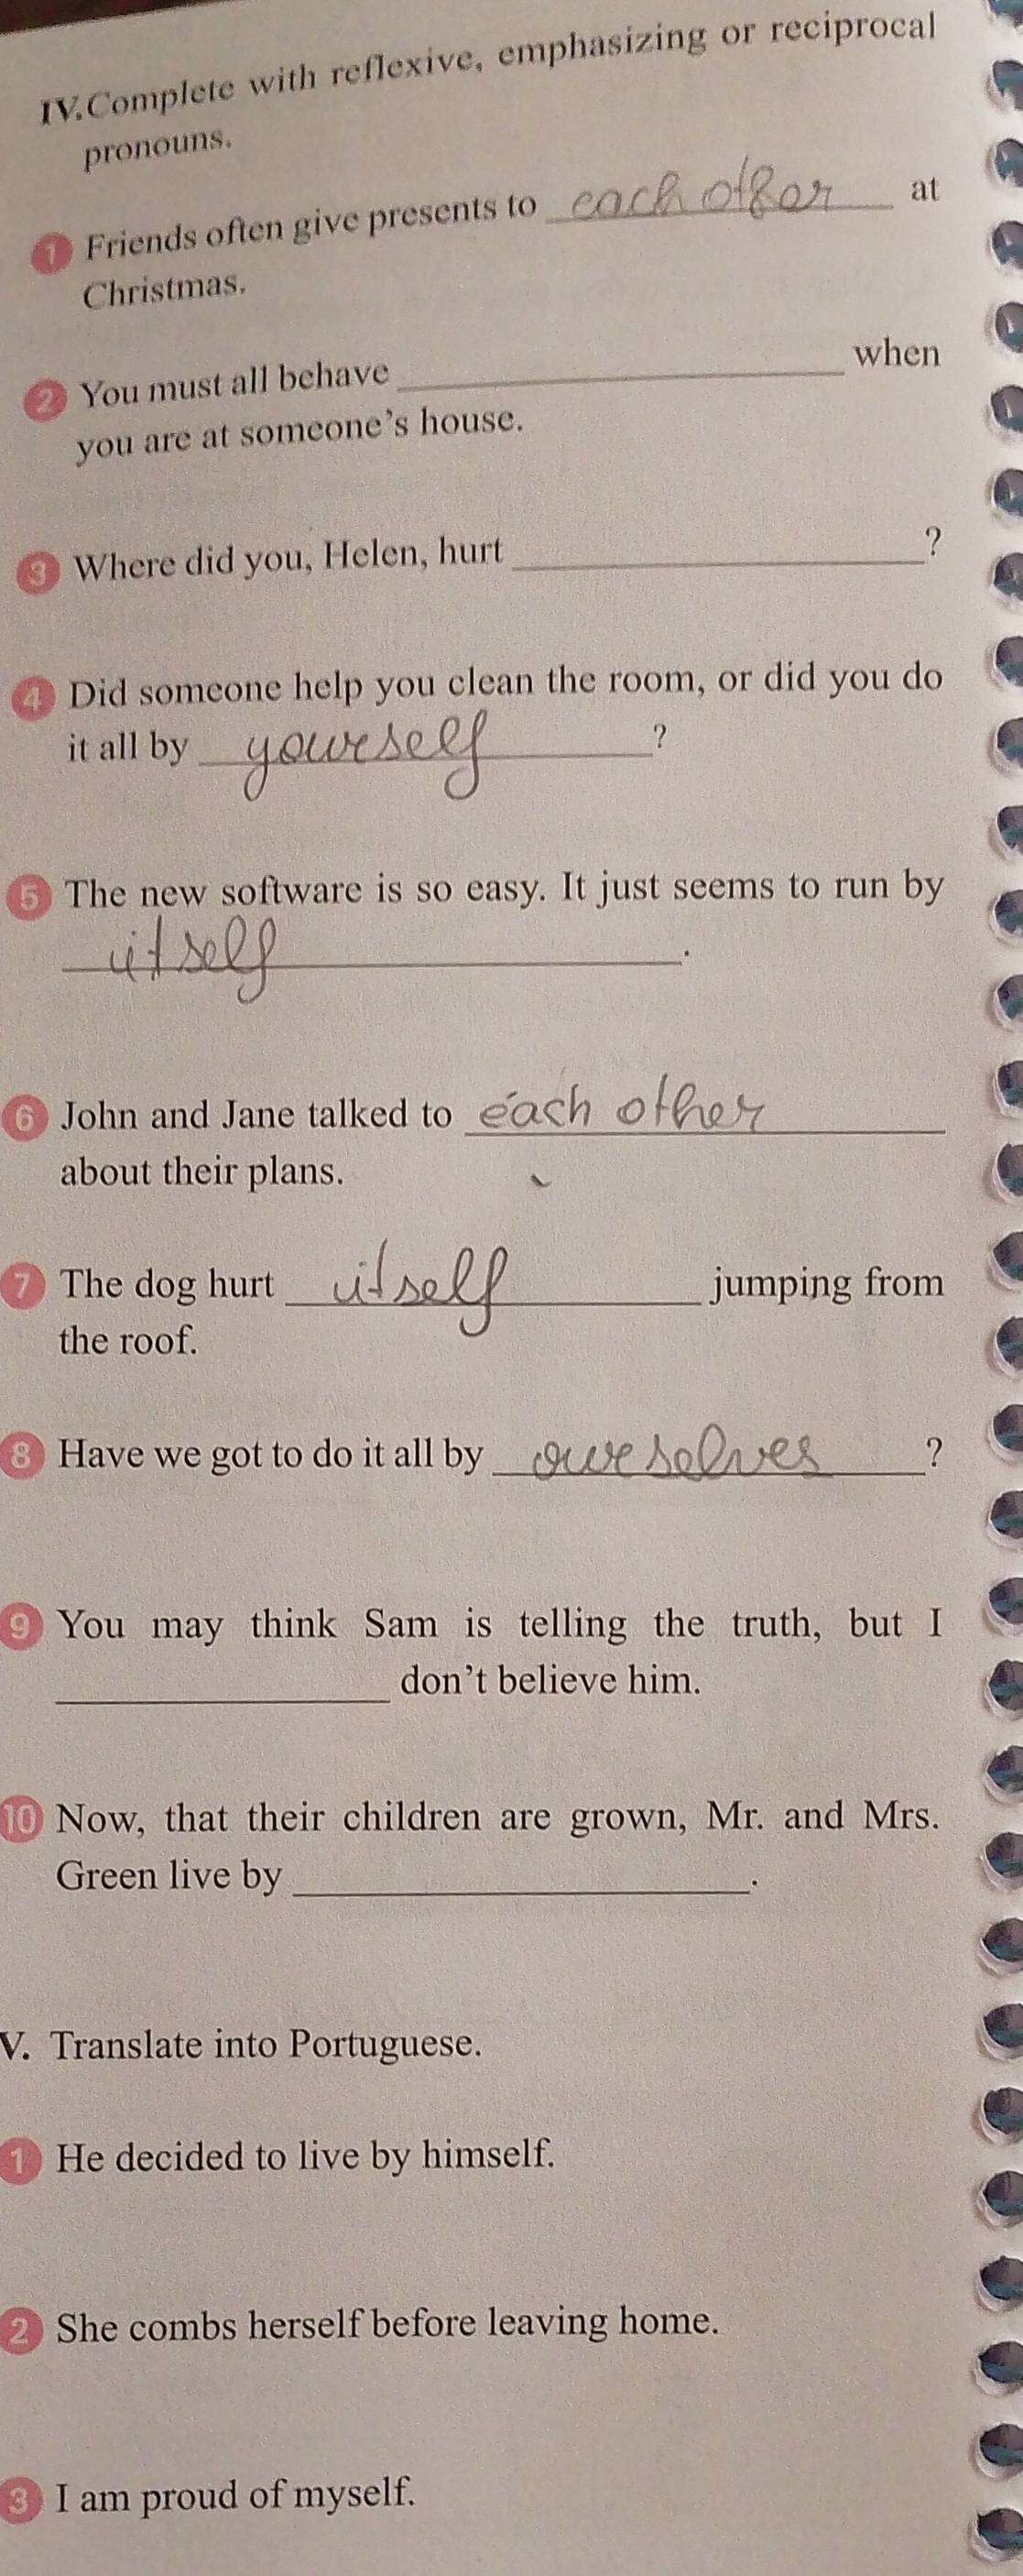 IV.Complete with reflexive, emphasizing or reciprocal
pronouns.
1 Friends often give presents to each other at
Christmas.
2 You must all behave ____________ when
you are at someone's house.
3 Where did you, Helen, hurt ____________?
4 Did someone help you clean the room, or did you do
it all by yourself?
5 The new software is so easy. It just seems to run by
itself.
6 John and Jane talked to each other
about their plans.
7 The dog hurt itself jumping from
the roof.
8 Have we got to do it all by ourselves?
9 You may think Sam is telling the truth, but I
____________ don't believe him.
10 Now, that their children are grown, Mr. and Mrs.
Green live by ____________.
V. Translate into Portuguese.
1 He decided to live by himself.
2 She combs herself before leaving home.
3 I am proud of myself.